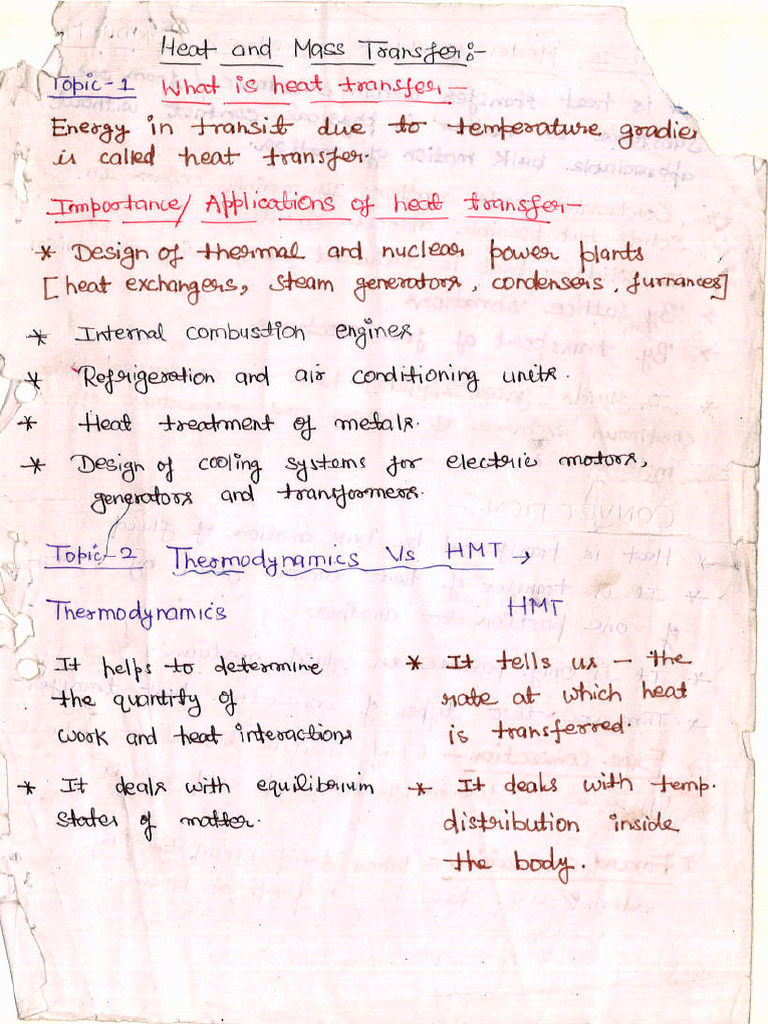 Heat and Mass Transfer:-
Topic-1 What is heat transfer:-
Energy in transit due to temperature gradie
is called heat transfer.
Importance/ Applications of heat transfer-
* Design of thermal and nuclear power plants
[heat exchangers, steam generators, condensers, furnances]
* Internal combustion engines
* Refrigeration and air conditioning units.
* Heat treatment of metals.
* Design of cooling systems for electric motors,
generators and transformers.
Topic-2 Thermodynamics Vs HMT →
Thermodynamics HMT
It helps to determine
the quantity of
work and heat interactions
* It deals with equilibrium
states of matter.
* It tells us - the
rate at which heat
is transferred.
* It deals with temp.
distribution inside
the body.